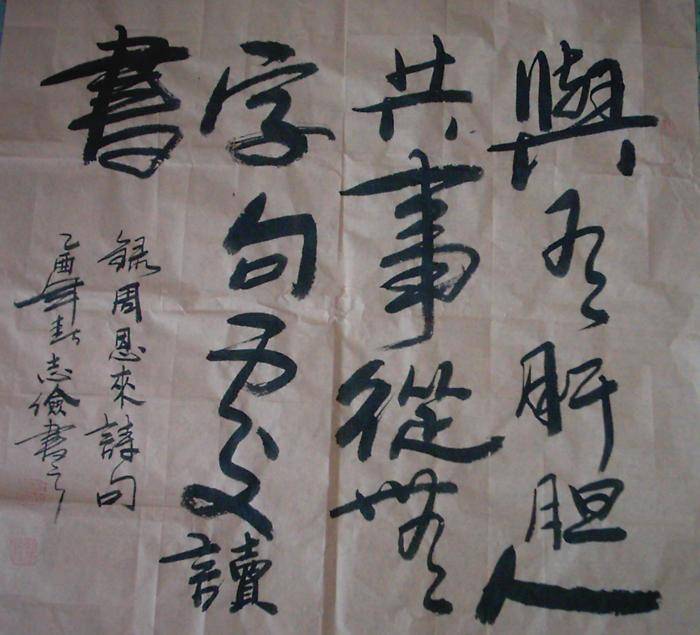 與有肝胆人
共事從無
字句處讀
書
録周恩來詩句
乙酉年春志儉書之